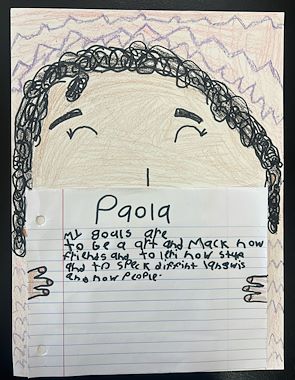 Paola
My goals are
to be a art and Mack now
friends and to lern now stuff
and to speck diffint langwis
and now people.